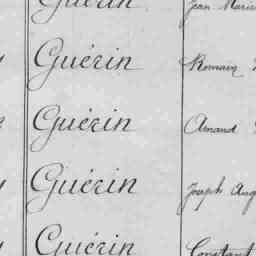 Guérin Jean Marie
Guérin Romain
Guérin Amand
Guérin Joseph Aug
Guérin Constant